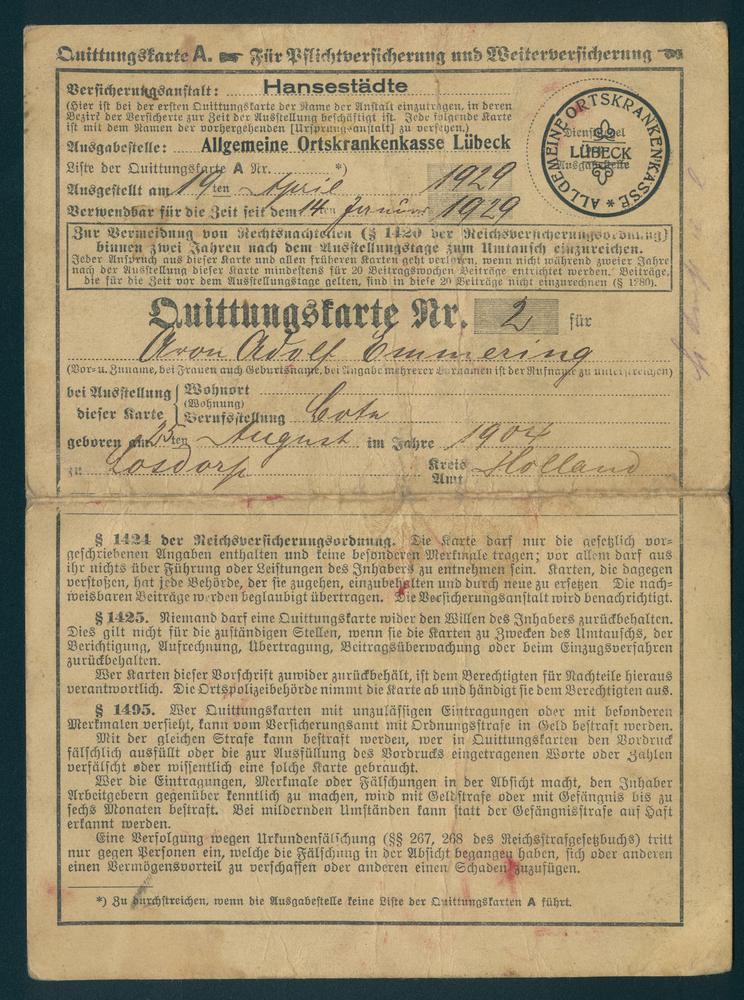 Quittungskarte A. Für Pflichtversicherung und Weiterversicherung
Versicherungsanstalt: Hansestädte
(Hier ist bei der ersten Quittungskarte der Name der Anstalt einzutragen, in deren
Bezirk der Versicherte zur Zeit der Ausstellung beschäftigt ist. Jede folgende Karte
ist mit dem Namen der vorhergehenden [Ursprungsanstalt] zu versehen.)
Ausgabestelle: Allgemeine Ortskrankenkasse Lübeck
Liste der Quittungskarte A Nr. *)
Ausgestellt am 19ten April 1929
Verwendbar für die Zeit seit dem 14ten Januar 1929
ALLGEMEINE ORTSKRANKENKASSE *
Dienstsiegel
LÜBECK
Ausgabestelle
Zur Vermeidung von Rechtsnachteilen (§ 1420 der Reichsversicherungsordnung)
binnen zwei Jahren nach dem Ausstellungstage zum Umtausch einzureichen.
Jeder Anspruch aus dieser Karte und allen früheren Karten geht verloren, wenn nicht während zweier Jahre
nach der Ausstellung dieser Karte mindestens für 20 Beitragswochen Beiträge entrichtet werden. Beiträge,
die für die Zeit vor dem Ausstellungstage gelten, sind in diese 20 Beiträge nicht einzurechnen (§ 1280).
Quittungskarte Nr. 2 für
Aron Adolf Emmering
(Vor- u. Zuname, bei Frauen auch Geburtsname, bei Angabe mehrerer Vornamen ist der Rufname zu unterstreichen)
bei Ausstellung dieser Karte
Wohnort
(Wohnung)
Berufsstellung
geboren am 25ten August im Jahre 1904
zu Losdorp Kreis Amt Holland
§ 1424 der Reichsversicherungsordnung. Die Karte darf nur die gesetzlich vor-
geschriebenen Angaben enthalten und keine besonderen Merkmale tragen; vor allem darf aus
ihr nichts über Führung oder Leistungen des Inhabers zu entnehmen sein. Karten, die dagegen
verstoßen, hat jede Behörde, der sie zugehen, einzubehalten und durch neue zu ersetzen Die nach-
weisbaren Beiträge werden beglaubigt übertragen. Die Versicherungsanstalt wird benachrichtigt.
§ 1425. Niemand darf eine Quittungskarte wider den Willen des Inhabers zurückbehalten.
Dies gilt nicht für die zuständigen Stellen, wenn sie die Karten zu Zwecken des Umtauschs, der
Berichtigung, Aufrechnung, Übertragung, Beitragsüberwachung oder beim Einzugsverfahren
zurückbehalten.
Wer Karten dieser Vorschrift zuwider zurückbehält, ist dem Berechtigten für Nachteile hieraus
verantwortlich. Die Ortspolizeibehörde nimmt die Karte ab und händigt sie dem Berechtigten aus.
§ 1495. Wer Quittungskarten mit unzulässigen Eintragungen oder mit besonderen
Merkmalen versieht, kann vom Versicherungsamt mit Ordnungsstrafe in Geld bestraft werden.
Mit der gleichen Strafe kann bestraft werden, wer in Quittungskarten den Vordruck
fälschlich ausfüllt oder die zur Ausfüllung des Vordrucks eingetragenen Worte oder Zahlen
verfälscht oder wissentlich eine solche Karte gebraucht.
Wer die Eintragungen, Merkmale oder Fälschungen in der Absicht macht, den Inhaber
Arbeitgebern gegenüber kenntlich zu machen, wird mit Geldstrafe oder mit Gefängnis bis zu
sechs Monaten bestraft. Bei mildernden Umständen kann statt der Gefängnisstrafe auf Haft
erkannt werden.
Eine Verfolgung wegen Urkundenfälschung (§§ 267, 268 des Reichsstrafgesetzbuchs) tritt
nur gegen Personen ein, welche die Fälschung in der Absicht begangen haben, sich oder anderen
einen Vermögensvorteil zu verschaffen oder anderen einen Schaden zuzufügen.
*) Zu durchstreichen, wenn die Ausgabestelle keine Liste der Quittungskarten A führt.